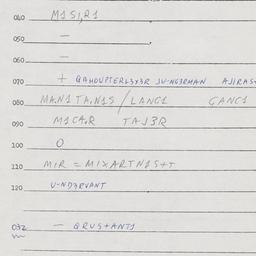 040 M1SI,R1
050 —
060 —
070 + QAHOUPTERL3X3R JU-NG3RMAN AJIRAS+
080 MA.N1 TA.N1S / LANG1 GANG1
090 M1CA.R TAJ3R
100 O
110 MIR = MIXARTN1S+T
120 U-ND3RVANT
032 — GRUS+ANT1